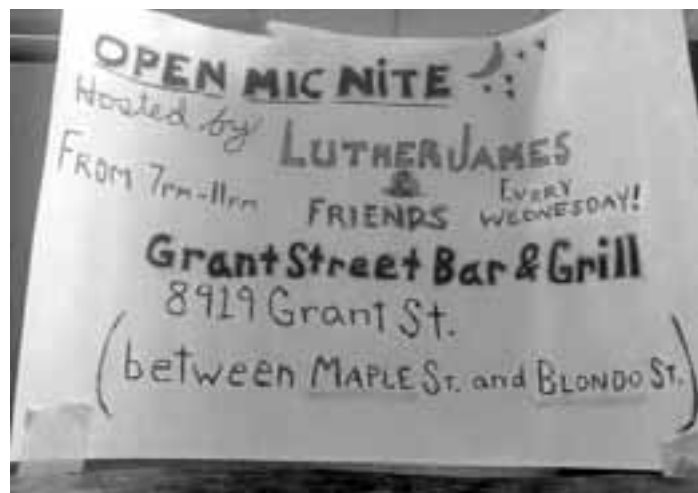 OPEN MIC NiTE
Hosted by LUTHER JAMES
& FRIENDS
FROM 7PM-11PM
EVERY WEDNESDAY!
Grant Street Bar & Grill
8919 Grant St.
(between MAPLE ST. and BLONDO ST.)